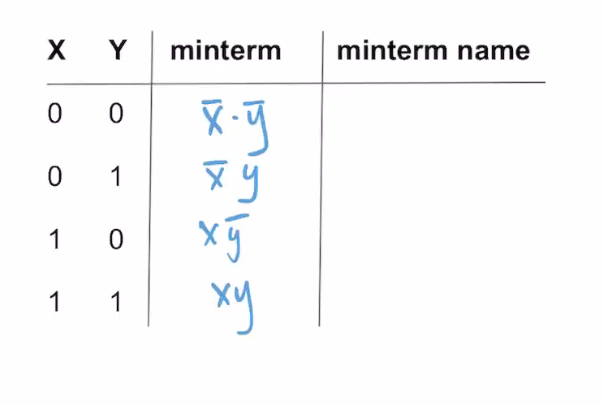 X Y minterm minterm name
0 0 x̅·y̅
0 1 x̅ y
1 0 x y̅
1 1 xy